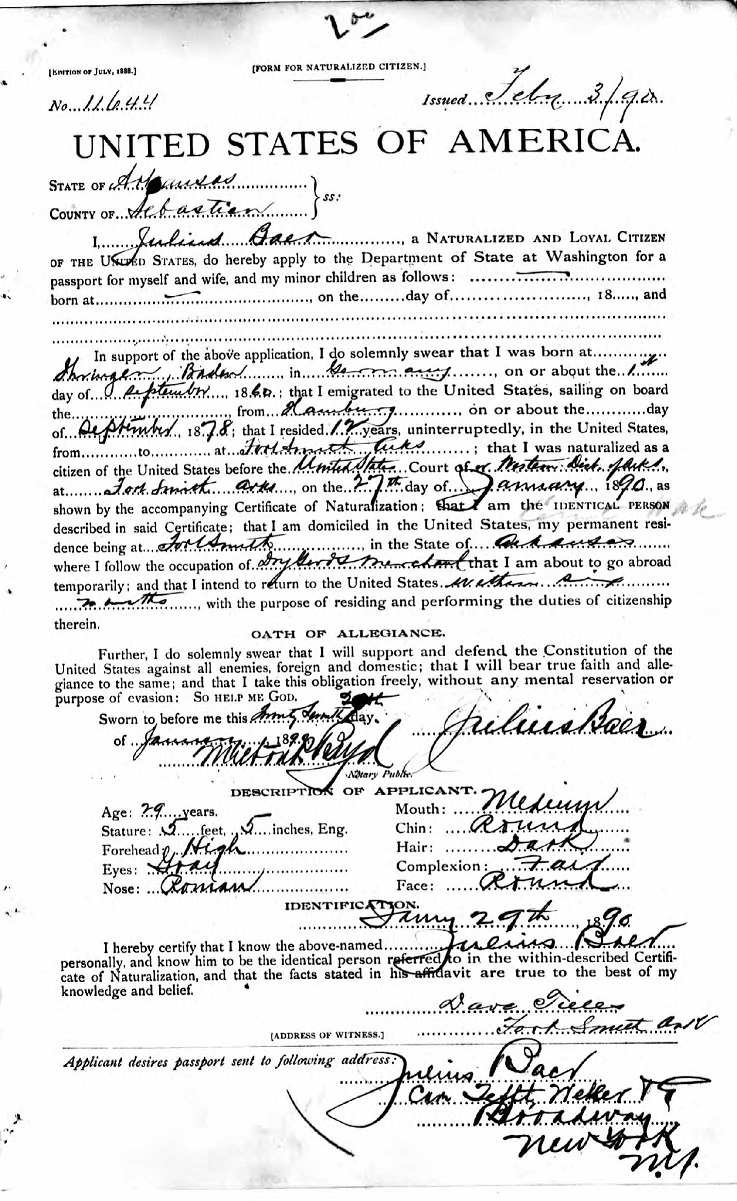 200
[EDITION OF JULY, 1888.] [FORM FOR NATURALIZED CITIZEN.]
No. 11644 Issued Feby 3/90
UNITED STATES OF AMERICA.
STATE OF Arkansas
COUNTY OF Sebastian } ss:
I, Julius Baer, a NATURALIZED AND LOYAL CITIZEN
OF THE UNITED STATES, do hereby apply to the Department of State at Washington for a
passport for myself and wife, and my minor children as follows:
born at, on the day of, 18, and
In support of the above application, I do solemnly swear that I was born at
Ihringen, Baden in Germany, on or about the 1st
day of September, 1860; that I emigrated to the United States, sailing on board
the, from Hamburg, on or about the day
of September, 1878; that I resided 12 years, uninterruptedly, in the United States,
from to, at Fort Smith Arks; that I was naturalized as a
citizen of the United States before the United States Court of Western Dist of Arks,
at Fort Smith Arks, on the 27th day of January, 1890, as
shown by the accompanying Certificate of Naturalization; that I am the IDENTICAL PERSON
described in said Certificate; that I am domiciled in the United States, my permanent resi-
dence being at Fort Smith, in the State of Arkansas
where I follow the occupation of Dry Goods Merchant that I am about to go abroad
temporarily; and that I intend to return to the United States within six
months, with the purpose of residing and performing the duties of citizenship
therein.
OATH OF ALLEGIANCE.
Further, I do solemnly swear that I will support and defend the Constitution of the
United States against all enemies, foreign and domestic; that I will bear true faith and alle-
giance to the same; and that I take this obligation freely, without any mental reservation or
purpose of evasion: SO HELP ME GOD. 29th
Sworn to before me this day
of January, 1890 Julius Baer
Notary Public.
DESCRIPTION OF APPLICANT.
Age: 29 years. Mouth: Medium
Stature: 5 feet, 5 inches, Eng. Chin: Round
Forehead: High Hair: Dark
Eyes: Gray Complexion: Fair
Nose: Roman Face: Round
IDENTIFICATION.
Janry 29th, 1890
I hereby certify that I know the above-named Julius Baer
personally, and know him to be the identical person referred to in the within-described Certifi-
cate of Naturalization, and that the facts stated in his affidavit are true to the best of my
knowledge and belief.
Dave
[ADDRESS OF WITNESS.] Fort Smith Ark
Applicant desires passport sent to following address:
Julius Baer
Care Tefft Weller & Co
Broadway
New York
N.Y.